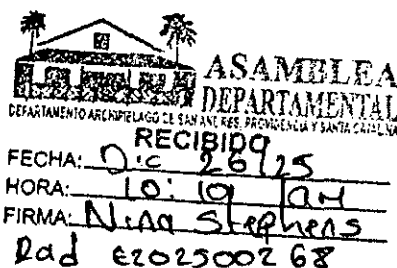 ASAMBLEA
DEPARTAMENTAL
DEPARTAMENTO ARCHIPIELAGO DE SAN ANDRES, PROVIDENCIA Y SANTA CATALINA
RECIBIDO
FECHA: Dic 26/25
HORA: 10:19 AM
FIRMA: Nina Stephens
Rad E202500268